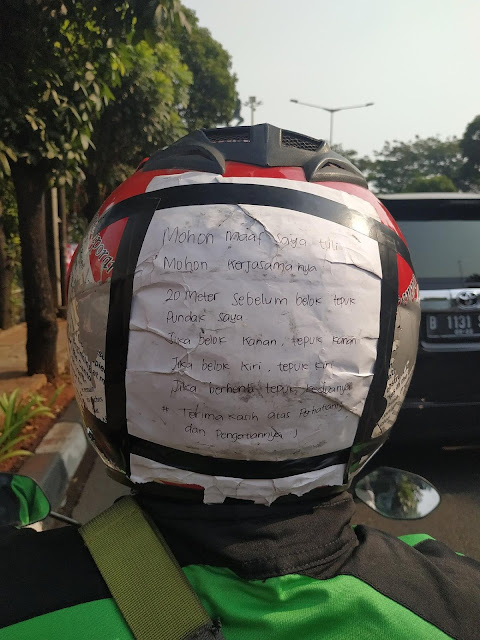 Mohon maaf saya tuli
Mohon kerjasamanya
20 Meter sebelum belok tepuk
pundak saya
Jika belok kanan, tepuk kanan
Jika belok kiri, tepuk kiri
Jika berhenti tepuk keduanya
# Terima kasih atas Perhatiannya
dan Pengertiannya
B 1131